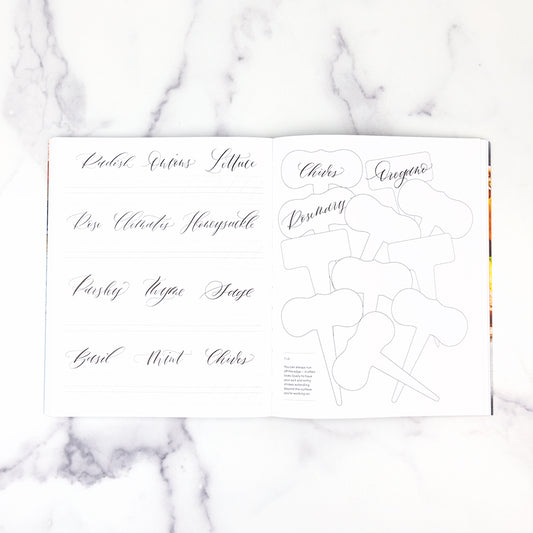 Radish Onions Lettuce
Rose Clematis Honeysuckle
Parsley Thyme Sage
Basil Mint Chives
Chives Oregano
Rosemary
TIP